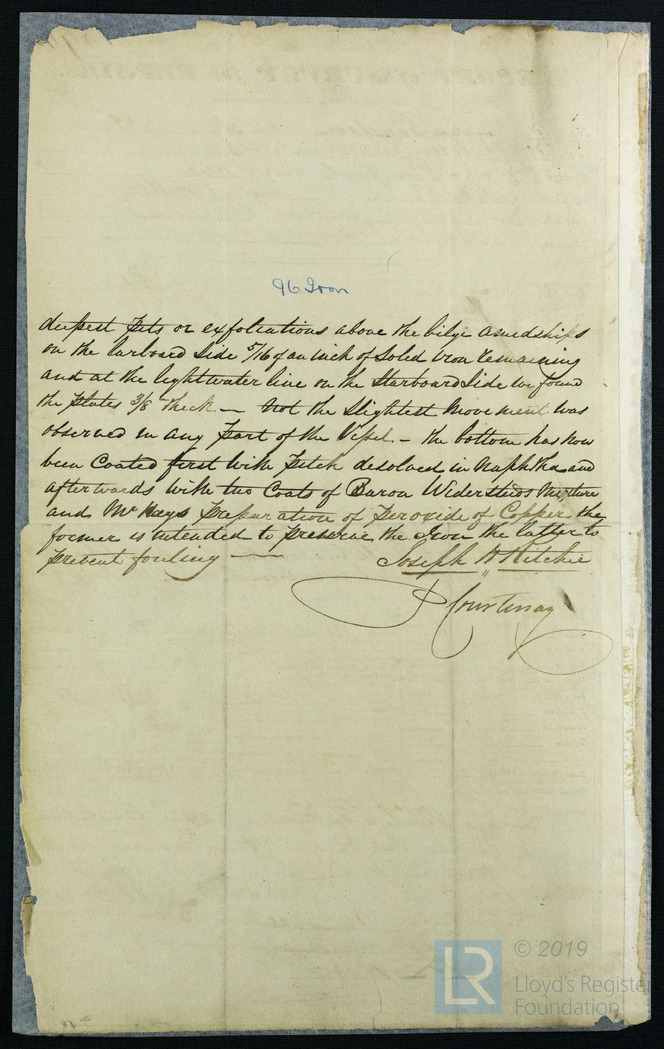 96 Iron
deepest Pits or exfoliations above the bilge amedships
on the larboard side 5/16 of an inch of Soled Iron remaining
and at the light water line on the Starboard Side we found
the plates 3/8 thick — Not the Slightest Movement was
observed in any Part of the Vessel — the bottom has now
been Coated first with Pitch desolved in Naphtha and
afterwards with two Coats of Baron Mixture
and Mr Hays Preparation of Peroxide of Copper the
former is intended to preserve the Iron the latter to
prevent fouling —
Joseph H Ritchie
P Courtenay
LR
© 2019
Lloyd's Register
Foundation